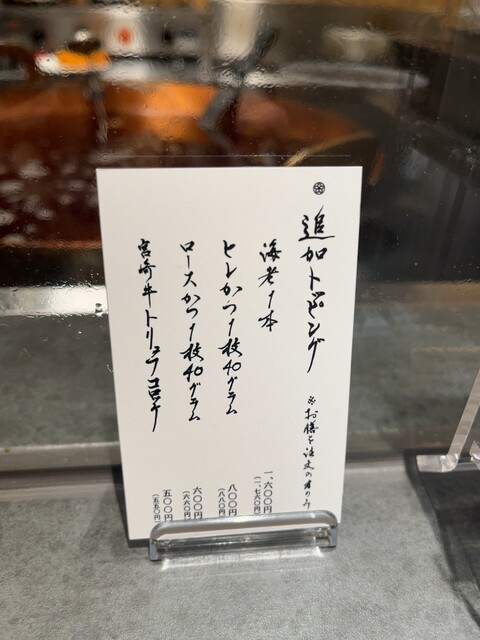 追加トッピング
※お膳を注文の方のみ
海老1本
一、六〇〇円
(一、七六〇円)
ヒレかつ1枚40グラム
八〇〇円
(八八〇円)
ロースかつ1枚40グラム
六〇〇円
(六六〇円)
宮崎牛トリュフコロッケ
五〇〇円
(五五〇円)